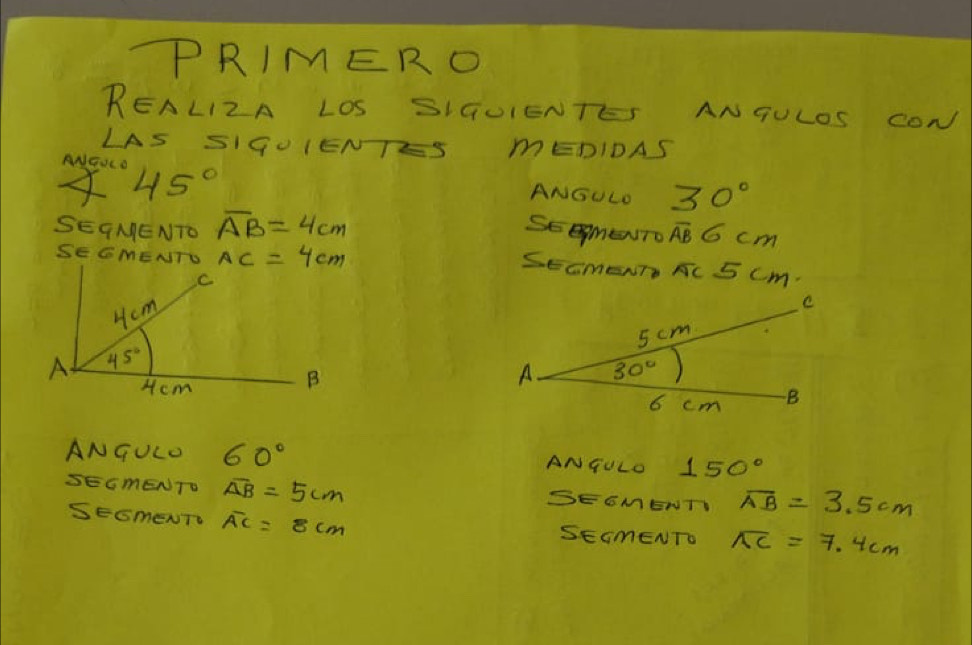 PRIMERO
REALIZA LOS SIGUIENTES ANGULOS CON
LAS SIGUIENTES MEDIDAS
ANGULO
∡ 45°
SEGMENTO A̅B̅ = 4cm
SEGMENTO AC = 4cm
C
4cm
45°
A
4cm
B
ANGULO 30°
SEGMENTO A̅B̅ 6 cm
SEGMENTO A̅C̅ 5 cm.
C
5 cm
A
30°
6 cm
B
ANGULO 60°
SEGMENTO A̅B̅ = 5cm
SEGMENTO A̅C̅ = 8cm
ANGULO 150°
SEGMENTO A̅B̅ = 3.5cm
SEGMENTO A̅C̅ = 7.4cm